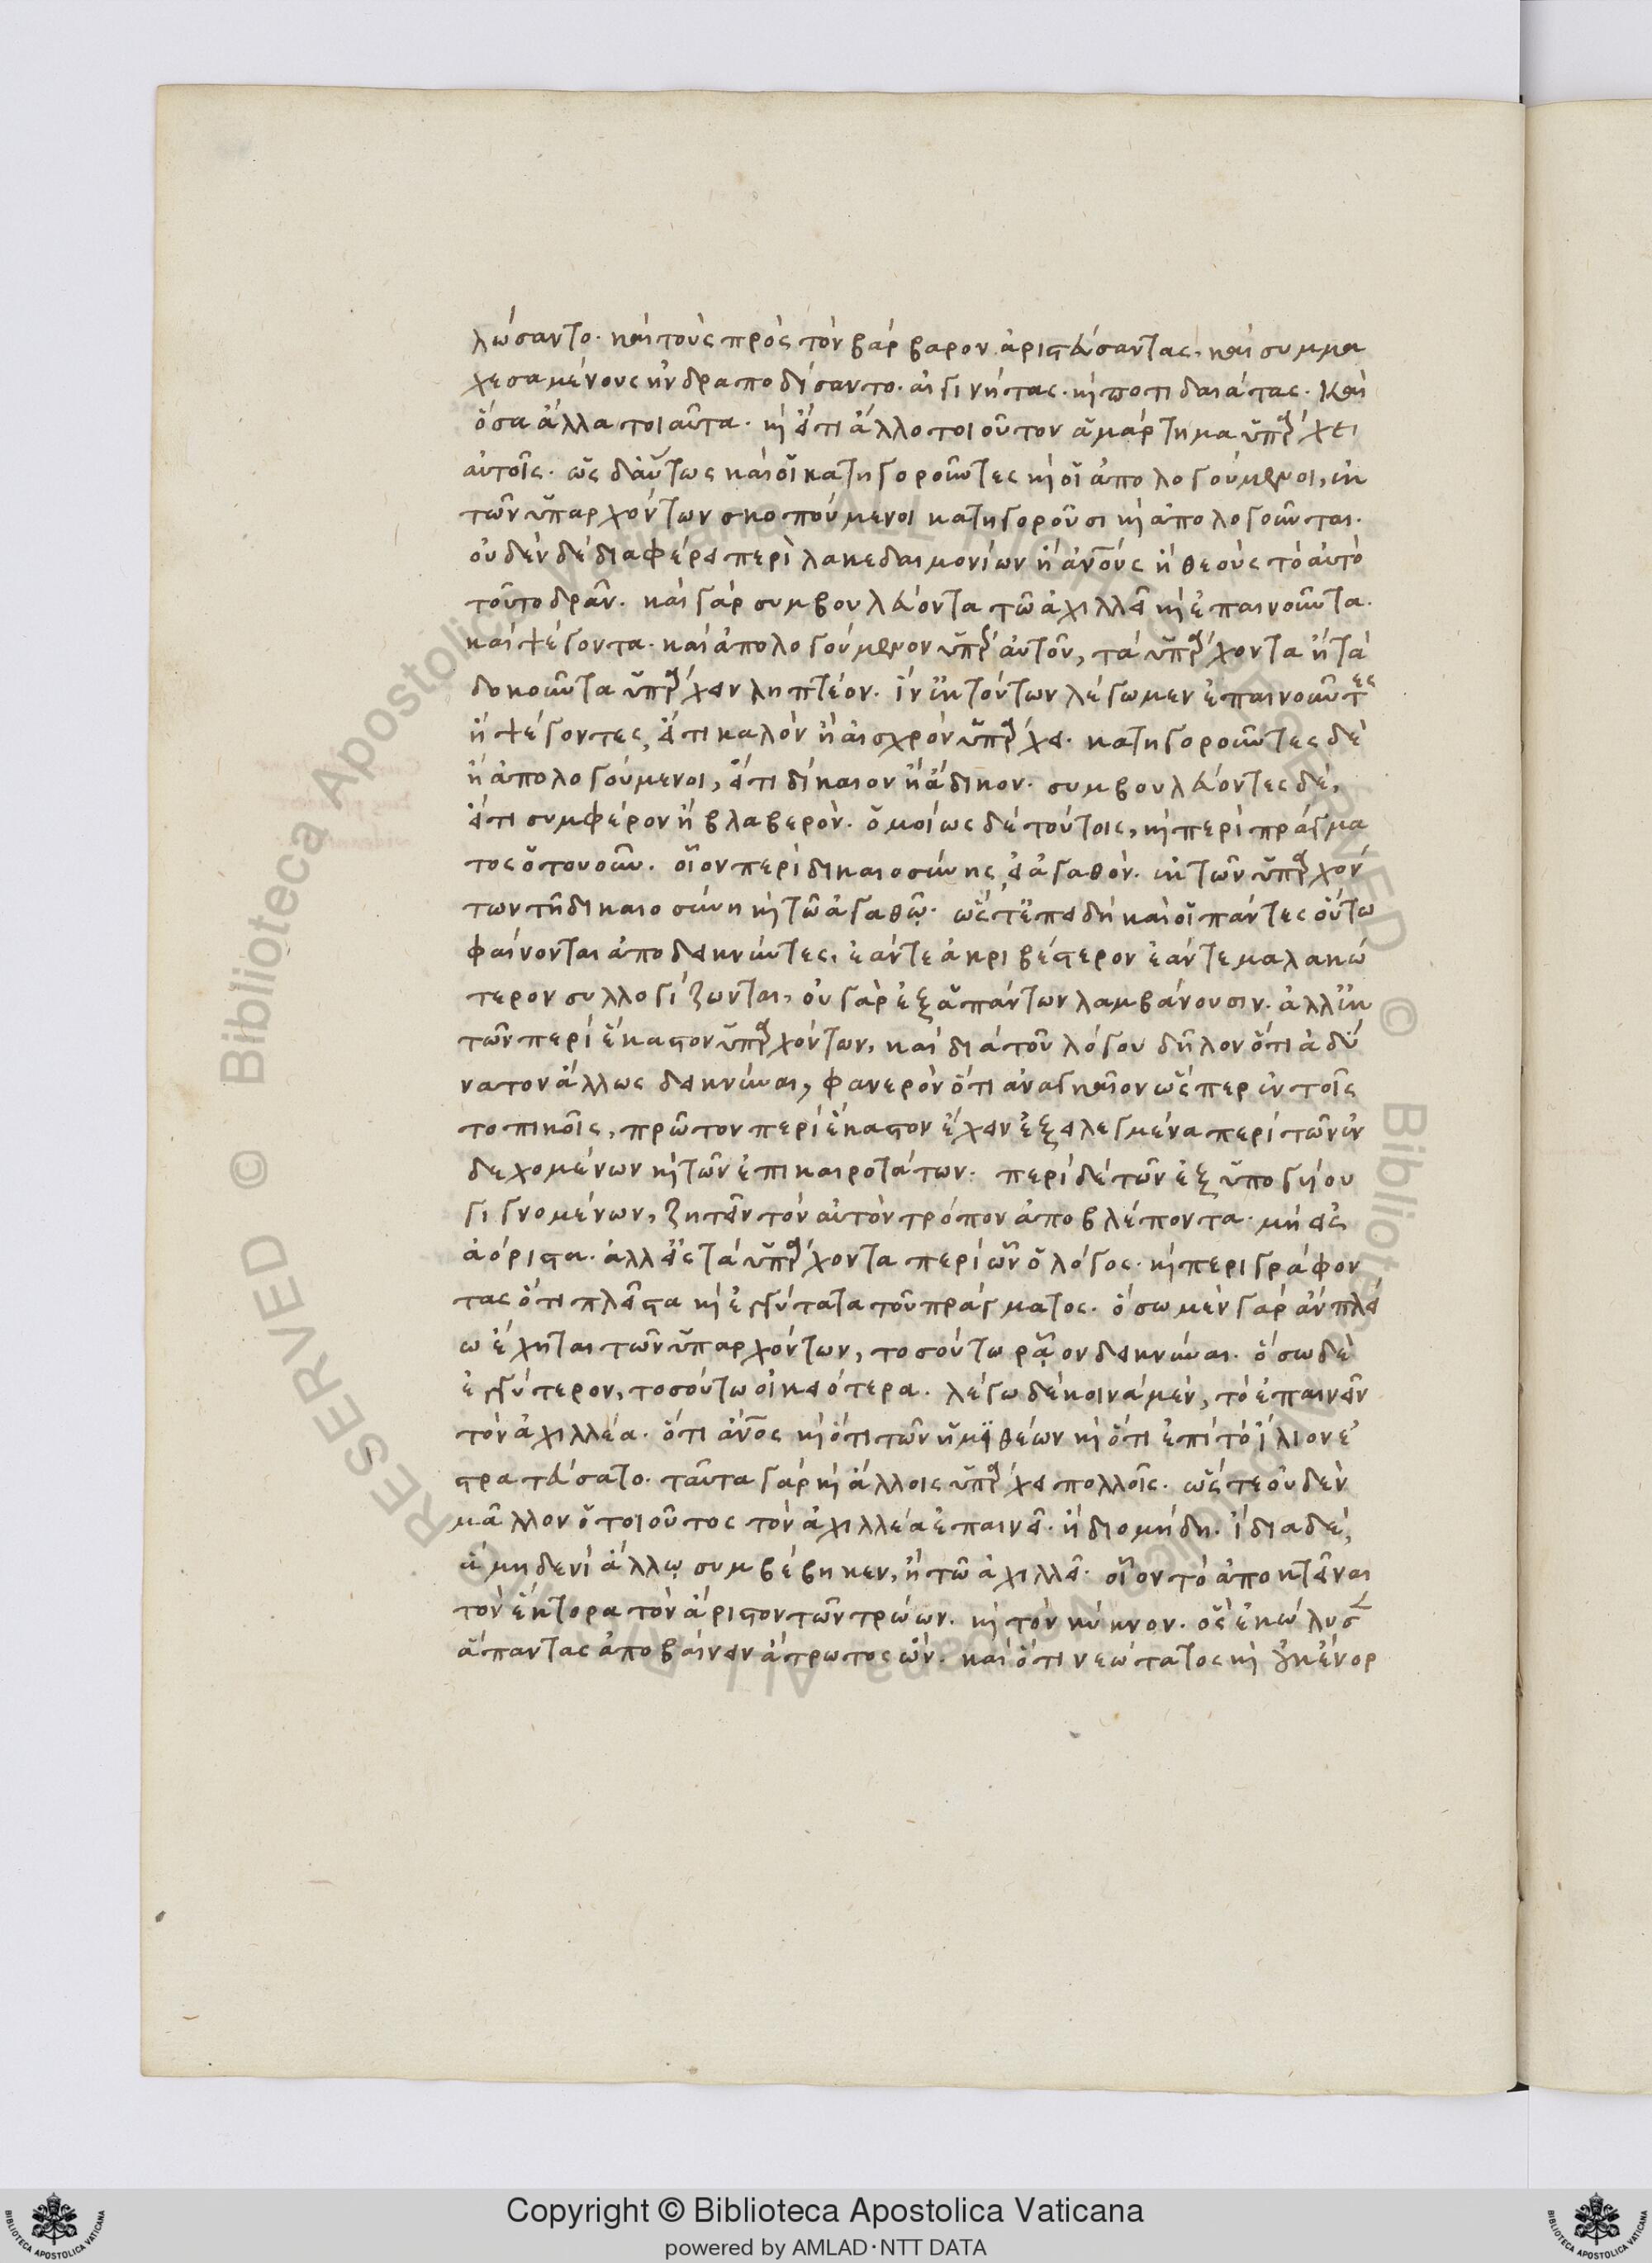 λώσαντο. καὶ τοὺς πρὸς τὸν βάρβαρον ἀριστεύσαντας, καὶ συμμα
χεσαμένους ἠνδραποδίσαντο. αἰγινήτας. κὶ ποτιδαιάτας. Καὶ
ὅσα ἄλλα τοιαῦτα. κὶ εἴ τι ἄλλο τοιοῦτον ἁμάρτημα ὑπάρχει
αὐτοῖς. ὡς δ' αὕτως καὶ οἱ κατηγοροῦντες κὶ οἱ ἀπολογούμενοι, ἐκ
τῶν ὑπαρχόντων σκοπούμενοι κατηγοροῦσι κὶ ἀπολογοῦνται.
οὐδὲν δὲ διαφέρει περὶ λακεδαιμονίων ἢ ἀνους ἢ θεοὺς τὸ αὐτὸ
τοῦτο δρᾶν. καὶ γὰρ συμβουλεύοντα τῶ ἀχιλλεῖ κὶ ἐπαινοῦντα.
καὶ ψέγοντα. καὶ ἀπολογούμενον ὑπὲρ αὐτοῦ, τὰ ὑπάρχοντα ἢ τὰ
δοκοῦντα ὑπάρχειν ληπτέον. ἵν' ἐκ τούτων λέγωμεν ἐπαινοῦντες
ἢ ψέγοντες, εἴ τι καλὸν ἢ αἰσχρὸν ὑπάρχει. κατηγοροῦντες δὲ
ἢ ἀπολογούμενοι, εἴ τι δίκαιον ἢ ἄδικον. συμβουλεύοντες δέ,
εἴ τι συμφέρον ἢ βλαβερόν. ὁμοίως δὲ τούτοις, κὶ περὶ πράγμα
τος ὁτουοῦν. οἷον περὶ δικαιοσύνης, εἰ ἀγαθόν. ἐκ τῶν ὑπαρχόν
των τῆ δικαιοσύνη κὶ τῶ ἀγαθῷ. ὥστ' ἐπειδὴ καὶ οἱ πάντες οὕτω
φαίνονται ἀποδεικνύντες, ἐάντε ἀκριβέστερον ἐάντε μαλακώ
τερον συλλογίζωνται, οὐ γὰρ ἐξ ἁπάντων λαμβάνουσιν. ἀλλ' ἐκ
τῶν περὶ ἕκαστον ὑπαρχόντων, καὶ διὰ τοῦ λόγου δῆλον ὅτι ἀδύ
νατον ἄλλως δεικνύναι, φανερὸν ὅτι ἀναγκαῖον ὥσπερ ἐν τοῖς
τοπικοῖς, πρῶτον περὶ ἕκαστον ἔχειν ἐξειλεγμένα περὶ τῶν ἐν
δεχομένων κὶ τῶν ἐπικαιροτάτων. περὶ δὲ τῶν ἐξ ὑπογήου
γιγνομένων, ζητεῖν τὸν αὐτὸν τρόπον ἀποβλέποντα. μὴ εἰς
ἀόριστα. ἀλλ' εἰς τὰ ὑπάρχοντα περὶ ὧν ὁ λόγος. κὶ περιγράφον
τας ὅτι πλεῖστα κὶ ἐγγύτατα τοῦ πράγματος. ὅσω μὲν γὰρ ἂν πλεί
ω ἔχηται τῶν ὑπαρχόντων, τοσούτω ρᾷον δεικνύναι. ὅσω δὲ
ἐγγύτερον, τοσούτω οἰκειότερα. λέγω δὲ κοινὰ μέν, τὸ ἐπαινεῖν
τὸν ἀχιλλέα. ὅτι ἄνος κὶ ὅτι τῶν ἡμϊθέων κὶ ὅτι ἐπὶ τὸ ἴλιον ἐ
στρατεύσατο. ταῦτα γὰρ κὶ ἄλλοις ὑπάρχει πολλοῖς. ὥστε οὐδὲν
μᾶλλον ὁ τοιοῦτος τὸν ἀχιλλέα ἐπαινεῖ. ἢ διομήδη. ἴδια δέ,
ἃ μηδενὶ ἄλλῳ συμβέβηκεν, ἢ τῶ ἀχιλλεῖ. οἷον τὸ ἀποκτεῖναι
τὸν ἕκτορα τὸν ἄριστον τῶν τρώων. κὶ τὸν κύκνον. ὃς ἐκώλυσ
ἅπαντας ἀποβαίνειν ἄτρωτος ὤν. καὶ ὅτι νεώτατος κὶ οὐκ ἔνορ